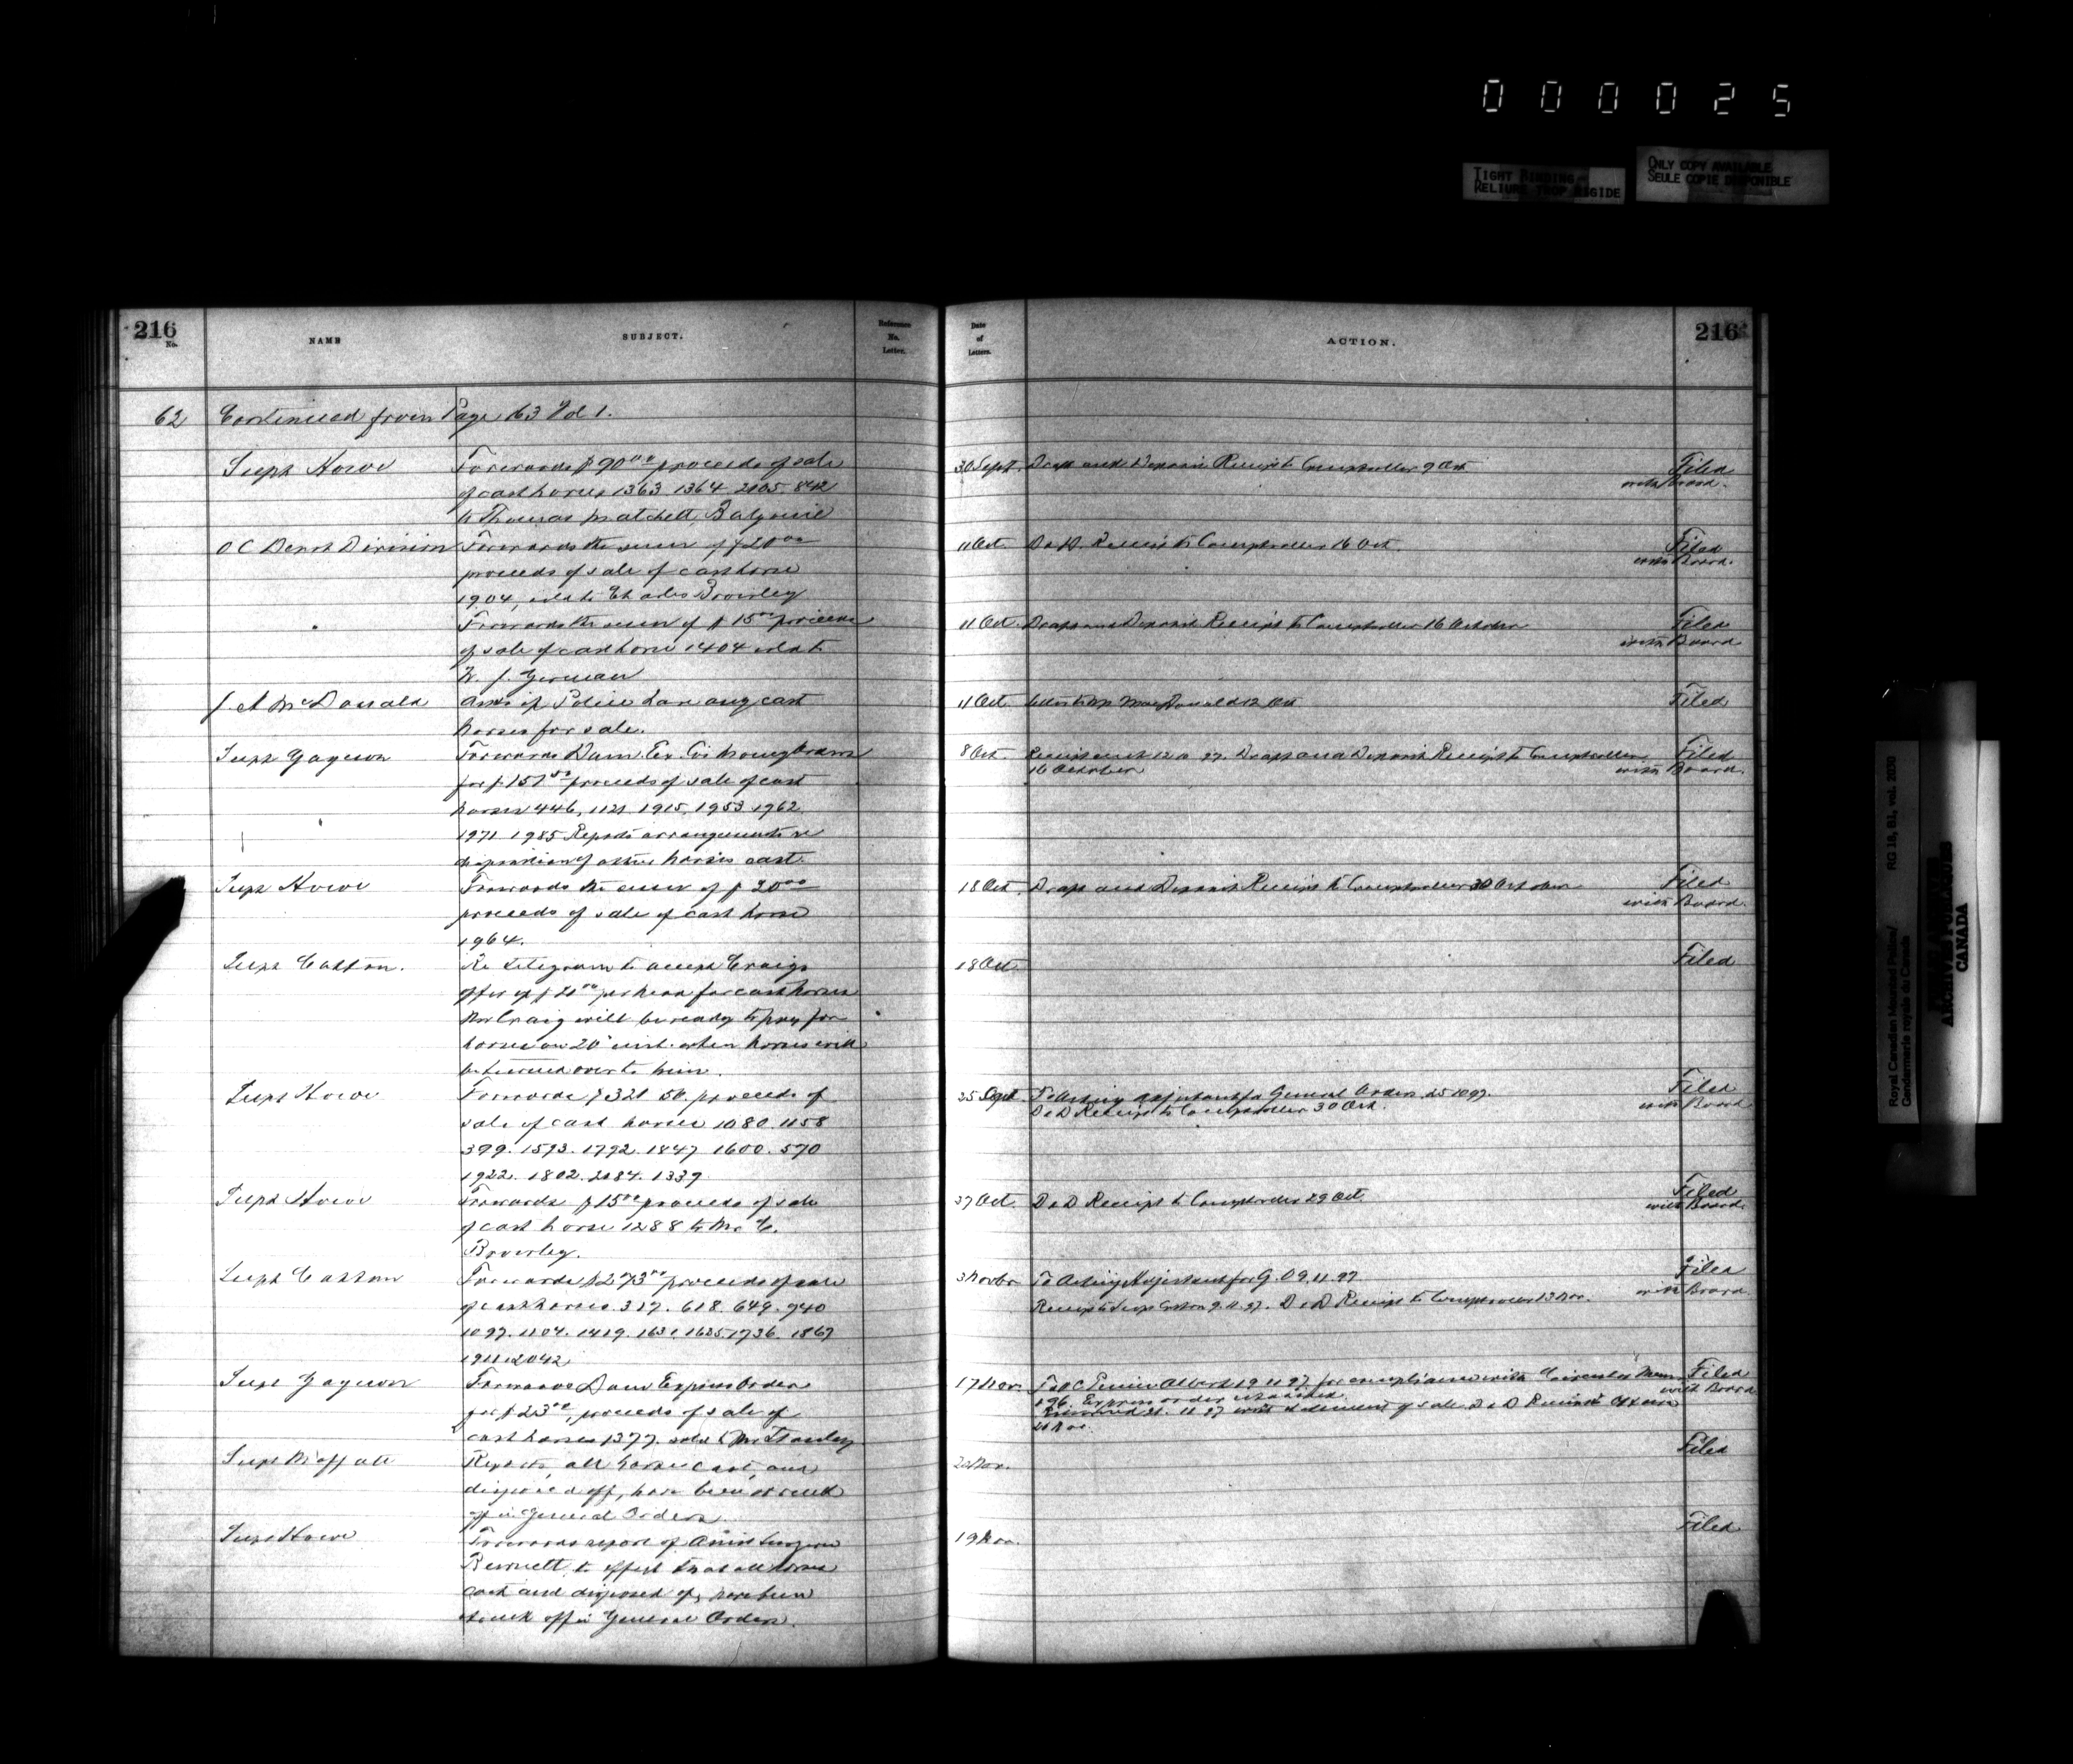 000025
TIGHT BINDING-
RELIURE TROP RIGIDE
ONLY COPY AVAILABLE
SEULE COPIE DISPONIBLE
216
No.
NAME
SUBJECT.
Reference
No.
Letter.
Date
of
Letters.
ACTION.
216
62 Continued from Page 163 Vol 1.
Supt Howe Forwards $90.00 proceeds of sale
of cast horses 1363. 1364. 2105. 842
to Thomas Matchett, Balgonie
30 Sept. Draft and Deposit Receipt to Comptroller 9 Oct
Filed
with Board.
O C Depot Division Forwards the sum of $20.00
proceeds of sale of cast horse
1904, sold to Charles Brouley
11 Oct. D & D. Receipt to Comptroller 16 Oct.
Filed
with Board.
Forwards the sum of $15.00 proceeds
of sale of cast horse 1404 sold to
W. J. German
11 Oct. Draft and Deposit Receipt to Comptroller 16 October
Filed
with Board
J. A McDonald Asks if Police have any cast
horses for sale.
11 Oct. Letter to Mr MacDonald 12 Oct
Filed
Supt Gagnon Forwards Dom. Ex. Co's money order
for $157.50 proceeds of sale of cast
horses 446, 1121, 1915, 1953. 1962
1971. 1985 Reports arrangements re
disposition of other horses cast.
8 Oct. Receipt sent 12.10.97. Draft and Deposit Receipt to Comptroller
16 October
Filed
with Board.
Supt Howe Forwards the sum of $20.00
proceeds of sale of cast horse
1964.
18 Oct. Draft and Deposit Receipt to Comptroller 30 October
Filed
with Board.
Supt Cotton. Re telegram to accept Craigs
offer of $21.00 per head for cast horses
Mr Craig will be ready to pay for
horses on 20' inst. when horses will
be turned over to him.
18 Oct.
Filed
Supt Howe Forwards $321.50. proceeds of
sale of cast horses 1080. 1158
399. 1593. 1792. 1847. 1600. 570
1922. 1802. 2084. 1339.
25 Sept. To Acting Adjutant for General Orders. 25.10.97.
D & D Receipt to Comptroller 30 Oct.
Filed
with Board
Supt Howe Forwards $15.00 proceeds of sale
of cast horse 1288 to Mr C.
Brouley.
27 Oct. D & D Receipt to Comptroller 29 Oct.
Filed
with Board.
Supt Cotton Forwards $273.00 proceeds of sale
of cast horses. 317. 618. 649. 940
1097. 1104. 1419. 1631. 1635. 1736. 1867
1911. 2042
3 Novbr To Acting Adjutant for G. O 9.11.97
Receipt to Supt Cotton 9.11.97. D & D Receipt to Comptroller 13 Nov.
Filed
with Board
Supt Gagnon Forwards Dom Express Order
for $23.00, proceeds of sale of
cast horses 1377. sold to Mr Stanley
17 Nov. To O C Prince Albert 19 11 97. for compliance with Circular Memo
196. Express order attached.
Returned 26. 11 97 with statement of sale. D & D Receipt
26 Nov.
Filed
with Board
Supt Moffatt Reports, all horses cast, and
disposed off, have been struck
off in General Orders.
22 Nov.
Filed
Supt Howe Forwards report of Assist Surgeon
Burnett, to effect that all horses
cast and disposed of, have been
struck off in General Orders.
19 Nov.
Filed
Royal Canadian Mounted Police/
Gendarmerie royale du Canada
RG 18, B1, vol. 2030
CANADA